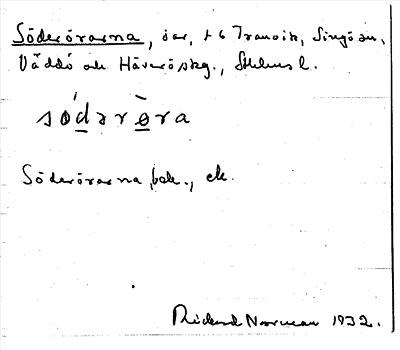 Söderörarna, öar, t 6 Tranvik, Singö sn,
Väddö och Häverö skg., Sthlms l.
södərøra
Söderörarna, bok., ek.
Rickard Norrman 1932.